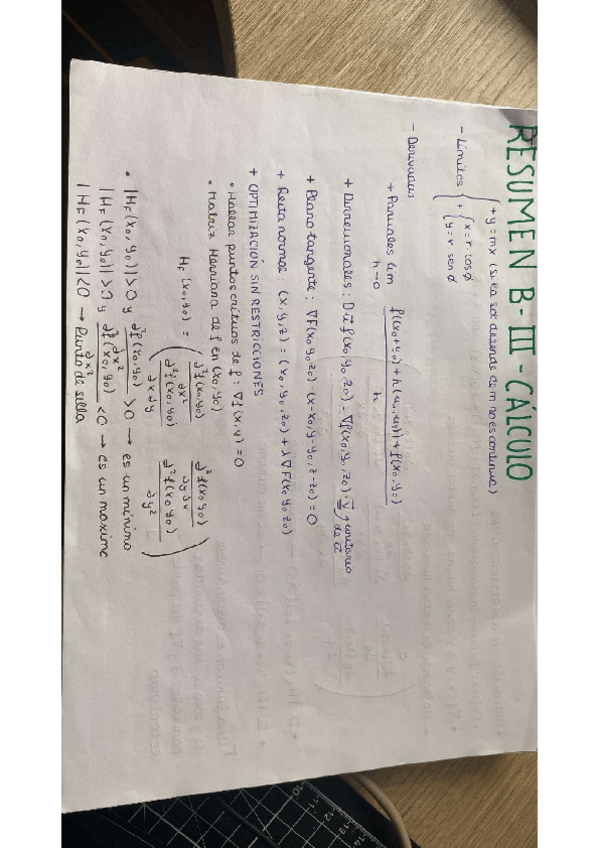 RESUMEN B-III-CÁLCULO
- Límites { + y=mx (si la sol depende de m no es continua)
+ { x=r·cosØ
y=r senØ
- Derivadas
+ Parciales lim h→0 f((x0+y0)+h(u1,u2))+f(x0,y0) / h
+ Direccionales: Dū f(x0,y0,z0) = ∇f(x0,y0,z0)·v, unitario de ū
+ Plano tangente: ∇F(x0,y0,z0)·(x-x0,y-y0,z-z0)=0
+ Recta normal (x,y,z)=(x0,y0,z0)+λ∇F(x0,y0,z0)
+ OPTIMIZACIÓN SIN RESTRICCIONES
• Hallar puntos críticos de f: ∇f(x,y)=0
• Matriz Hessiana de f en (x0,y0)
HF(x0,y0) = ( ∂²f(x0,y0) / ∂x² ∂²f(x0,y0) / ∂y∂x
∂²f(x0,y0) / ∂x∂y ∂²f(x0,y0) / ∂y² )
• |HF(x0,y0)|>0 y ∂²f(x0,y0) / ∂x² >0 → es un mínimo
|HF(x0,y0)|>0 y ∂²f(x0,y0) / ∂x² <0 → es un máximo
|HF(x0,y0)|<0 → Punto de silla
10
11
12
13
14